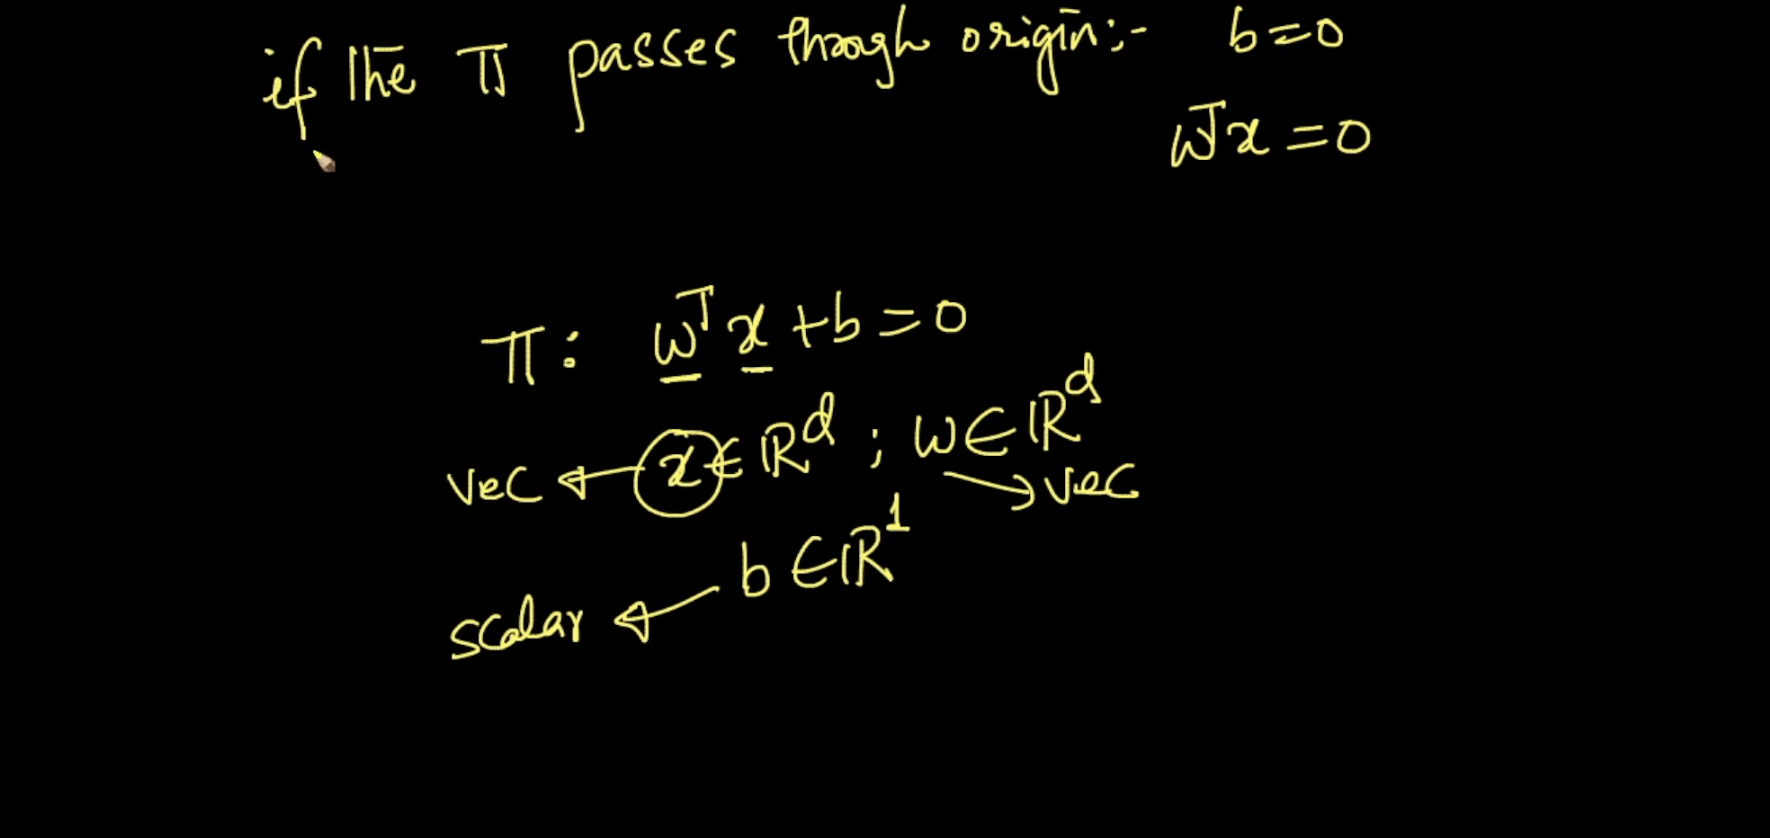 if the π passes through origin:- b=0
wᵀx=0
π: wᵀx+b=0
vec ← x∈ℝᵈ ; w∈ℝᵈ → vec
scalar ← b∈ℝ¹